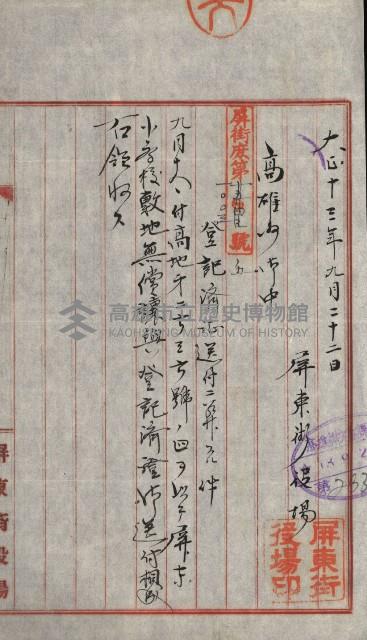 大正十三年九月二十二日
屏東街役場
屏東街
役場印
高雄州御中
屏街庶第
號
登記済證送付ニ算スル件
九月十八日付高地第二五三六號ノ四ヲ以テ屏東
小学校敷地無償譲與ノ登記済證御送付相成
右領収ス
屏東街役場
高雄市立歷史博物館
KAOHSIUNG MUSEUM OF HISTORY